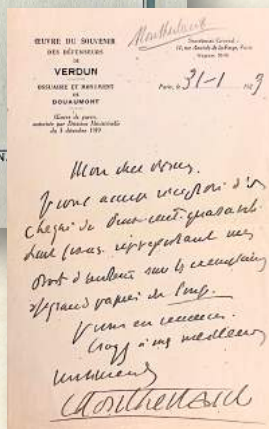 Montherlant
ŒUVRE DU SOUVENIR
DES DÉFENSEURS
DE
VERDUN
OSSUAIRE ET MONUMENT
DE
DOUAUMONT
Œuvre de guerre,
autorisée par Décision Ministérielle
du 3 décembre 1919
Secrétariat Général :
Paris, le 31-1 192
Mon cher
Je vous accuse réception d'un
chèque de deux cent quarante
francs représentant mes
droits d'auteur sur les exemplaires
grand papier du Songe.
Je vous en remercie.
Croyez à mes meilleurs
sentiments
Montherlant